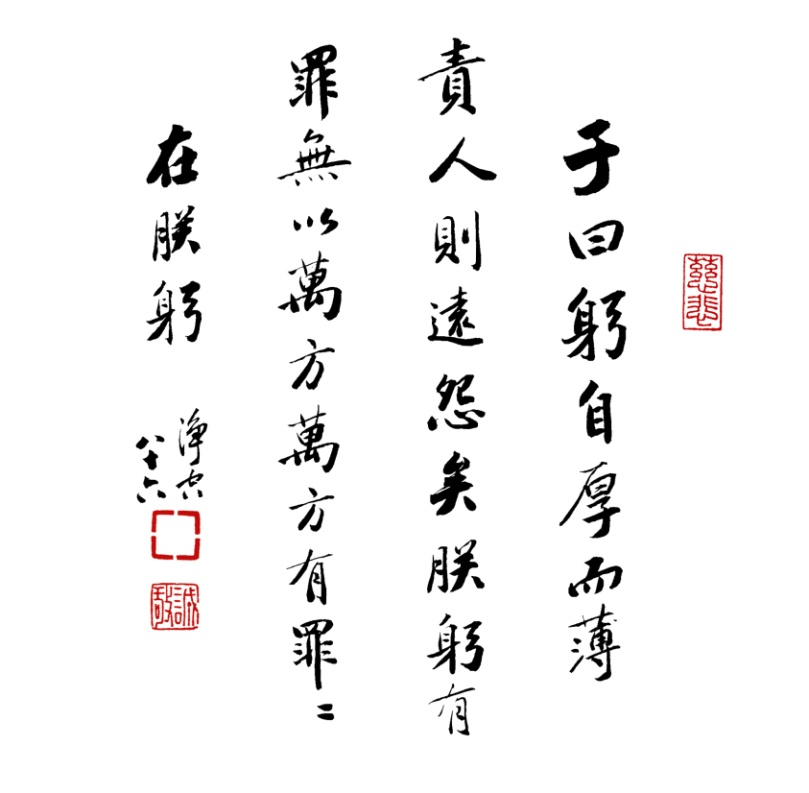 慈悲
子曰躬自厚而薄
責人則遠怨矣朕躬有
罪無以萬方萬方有罪〻
在朕躬
淨空
八十六
誠敬